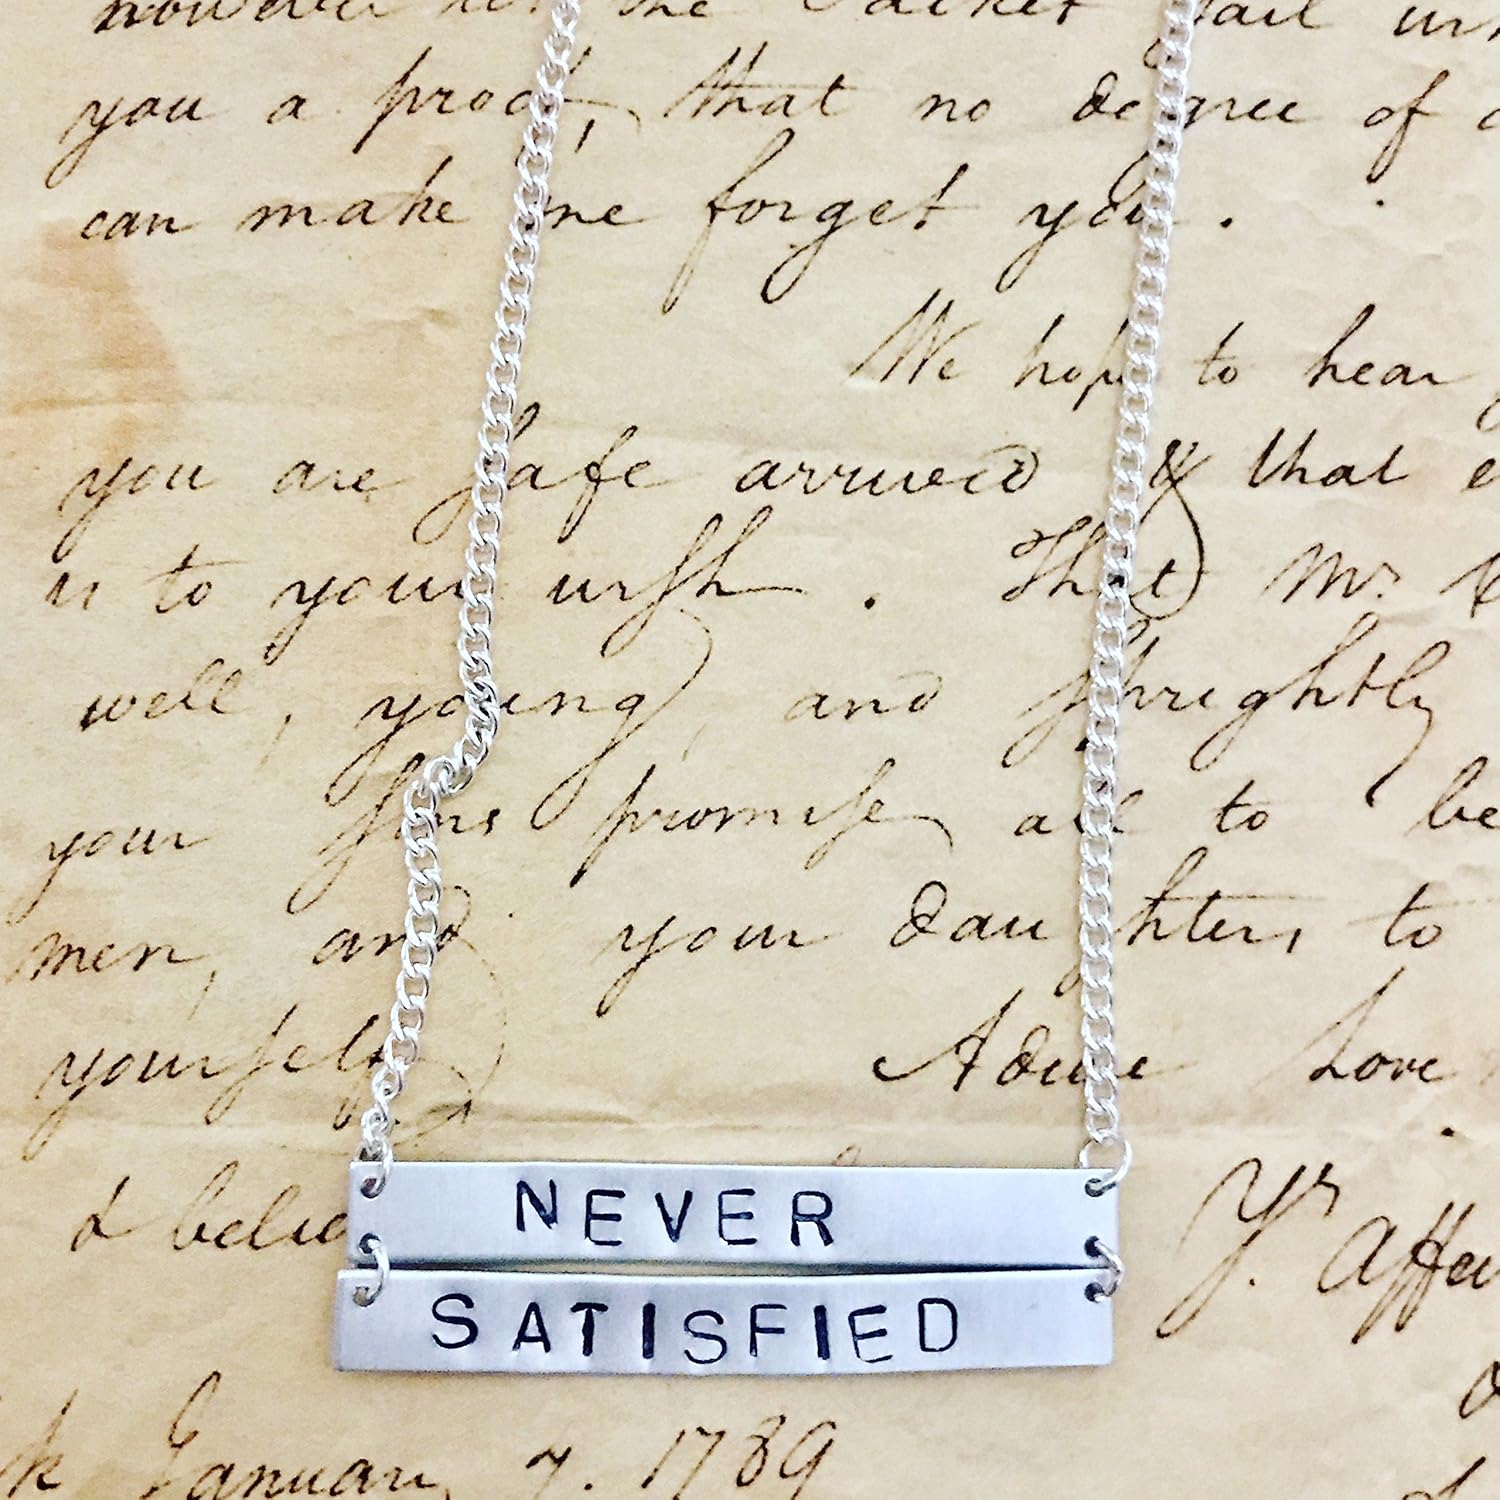 you a proof, that no degree of
can make me forget you.
We hope to hear
you are safe arrived & that
is to your wish. That Mr.
well, young, and sprightly
your sons promise all to be
men, and your daughters to
yourself. Adieu Love
& believe Yr. Affec
NEVER
SATISFIED
January 7. 1789